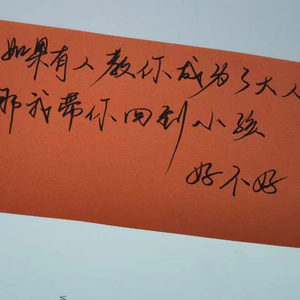 如果有人教你成为了大人
那我带你回到小孩
好不好